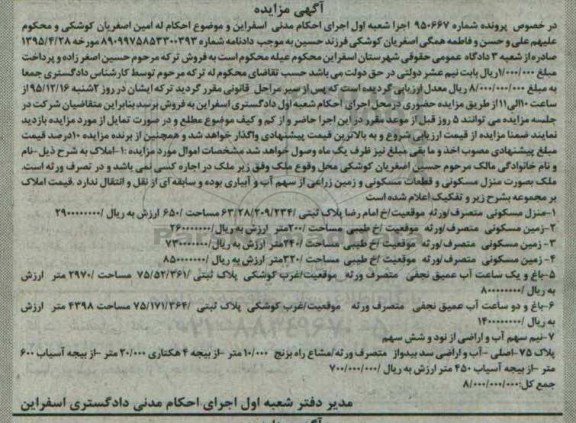 آگهی مزایده
در خصوص پرونده شماره ۹۵۰۶۶۷ اجرا شعبه اول اجرای احکام مدنی اسفراین و موضوع احکام له امین اصغریان کوشکی و محکوم
علیهم علی و حسن و فاطمه همگی اصغریان کوشکی فرزند حسین به موجب دادنامه شماره ۸۹۰۹۹۷۵۸۵۳۳۰۰۳۹۳ مورخه ۱۳۹۵/۴/۲۸
صادره از شعبه ۳ دادگاه عمومی حقوقی شهرستان اسفراین محکوم علیه محکوم است به فروش ترکه مرحوم حسین اصغر زاده و پرداخت
مبلغ ۱/۰۰۰/۰۰۰ ریال بابت نیم عشر دولتی در حق دولت می باشد حسب تقاضای محکوم له ترکه مرحوم توسط کارشناس دادگستری جمعا
به مبلغ ۸/۰۰۰/۰۰۰/۰۰۰ ریال معدل ارزیابی گردیده است که پس از سیر مراحل قانونی مقرر گردید ترکه ایشان در روز ۲شنبه ۹۵/۱۲/۱۶
ساعت ۱۰الی۱۱ از طریق مزایده حضوری در محل اجرای احکام شعبه اول دادگستری اسفراین به فروش برسد بنابراین متقاضیان شرکت در
جلسه مزایده می توانند ۵ روز قبل از موعد مقرر در این اجرا حاضر و از کم و کیف موضوع مطلع و در صورت تمایل از مورد مزایده بازدید
نمایند ضمنا مزایده از قیمت ارزیابی شروع و به بالاترین قیمت پیشنهادی واگذار خواهد شد و همچنین از برنده مزایده ۱۰درصد قیمت
مبلغ پیشنهادی مصوب اخذ و ما بقی مبلغ نیز ظرف یک ماه وصول خواهد شد مشخصات اموال مورد مزایده :۱-املاک به شرح ذیل -نام
و نام خانوادگی مالک مرحوم حسین اصغریان کوشکی محل وقوع ملک وفق زیر ملک در اجاره کسی نمی باشد و در تصرف ورثه است.
ملک بصورت منزل مسکونی و قطعات مسکونی و زمین زراعی از سهم آب و آبیاری بوده و سابقه ای از نقل و انتقال ندارد .قیمت املاک
بر مجموعه بشرح زیر و تفکیک اعلام شده است
۱-منزل مسکونی متصرف/ورثه موقعیت/خ امام رضا پلاک ثبتی /۶۳/۲۸/۲۰۹/۲۳۴ مساحت /۶۵۰ ارزش به ریال /۲۹۰۰۰۰۰۰۰۰
۲-زمین مسکونی متصرف/ورثه موقعیت /خ طیبی مساحت /۲۰۰متر ارزش به ریال /۲۶۰۰۰۰۰۰۰
۳- زمین مسکونی متصرف/ورثه موقعیت/خ طیبی مساحت /۲۴۰متر ارزش به ریال/۷۳۰۰۰۰۰۰۰
۴- زمین مسکونی متصرف/ورثه موقعیت /خ طیبی مساحت /۳۲۰متر ارزش به ریال /۸۵۰۰۰۰۰۰۰
۵-باغ و یک ساعت آب عمیق نجفی متصرف ورثه موقعیت/غرب کوشکی پلاک ثبتی /۷۵/۵۲/۳۶۱ مساحت /۲۹۷۰ متر ارزش
به ریال /۸۰۰۰۰۰۰۰۰
۶-باغ و دو ساعت آب عمیق نجفی متصرف ورثه موقعیت/غرب کوشکی پلاک ثبتی /۷۵/۱۷۱/۳۶۴ مساحت ۴۳۹۸ متر ارزش
به ریال /۱۴۰۰۰۰۰۰۰۰
۷-نیم سهم آب و اراضی از نود و شش سهم
پلاک ۷۵-اصلی -آب و اراضی سد بیدواز متصرف ورثه/مشاع راه بزنج ۱۰/۰۰۰ متر -از بیجه ۴ هکتاری ۲۰/۰۰۰ متر -از بیجه آسیاب ۶۰۰
متر -از بیجه آسیاب ۴۵۰ متر ارزش به ریال /۷۰۰/۰۰۰/۰۰۰
جمع کل:۸/۰۰۰/۰۰۰/۰۰۰
مدیر دفتر شعبه اول اجرای احکام مدنی دادگستری اسفراین